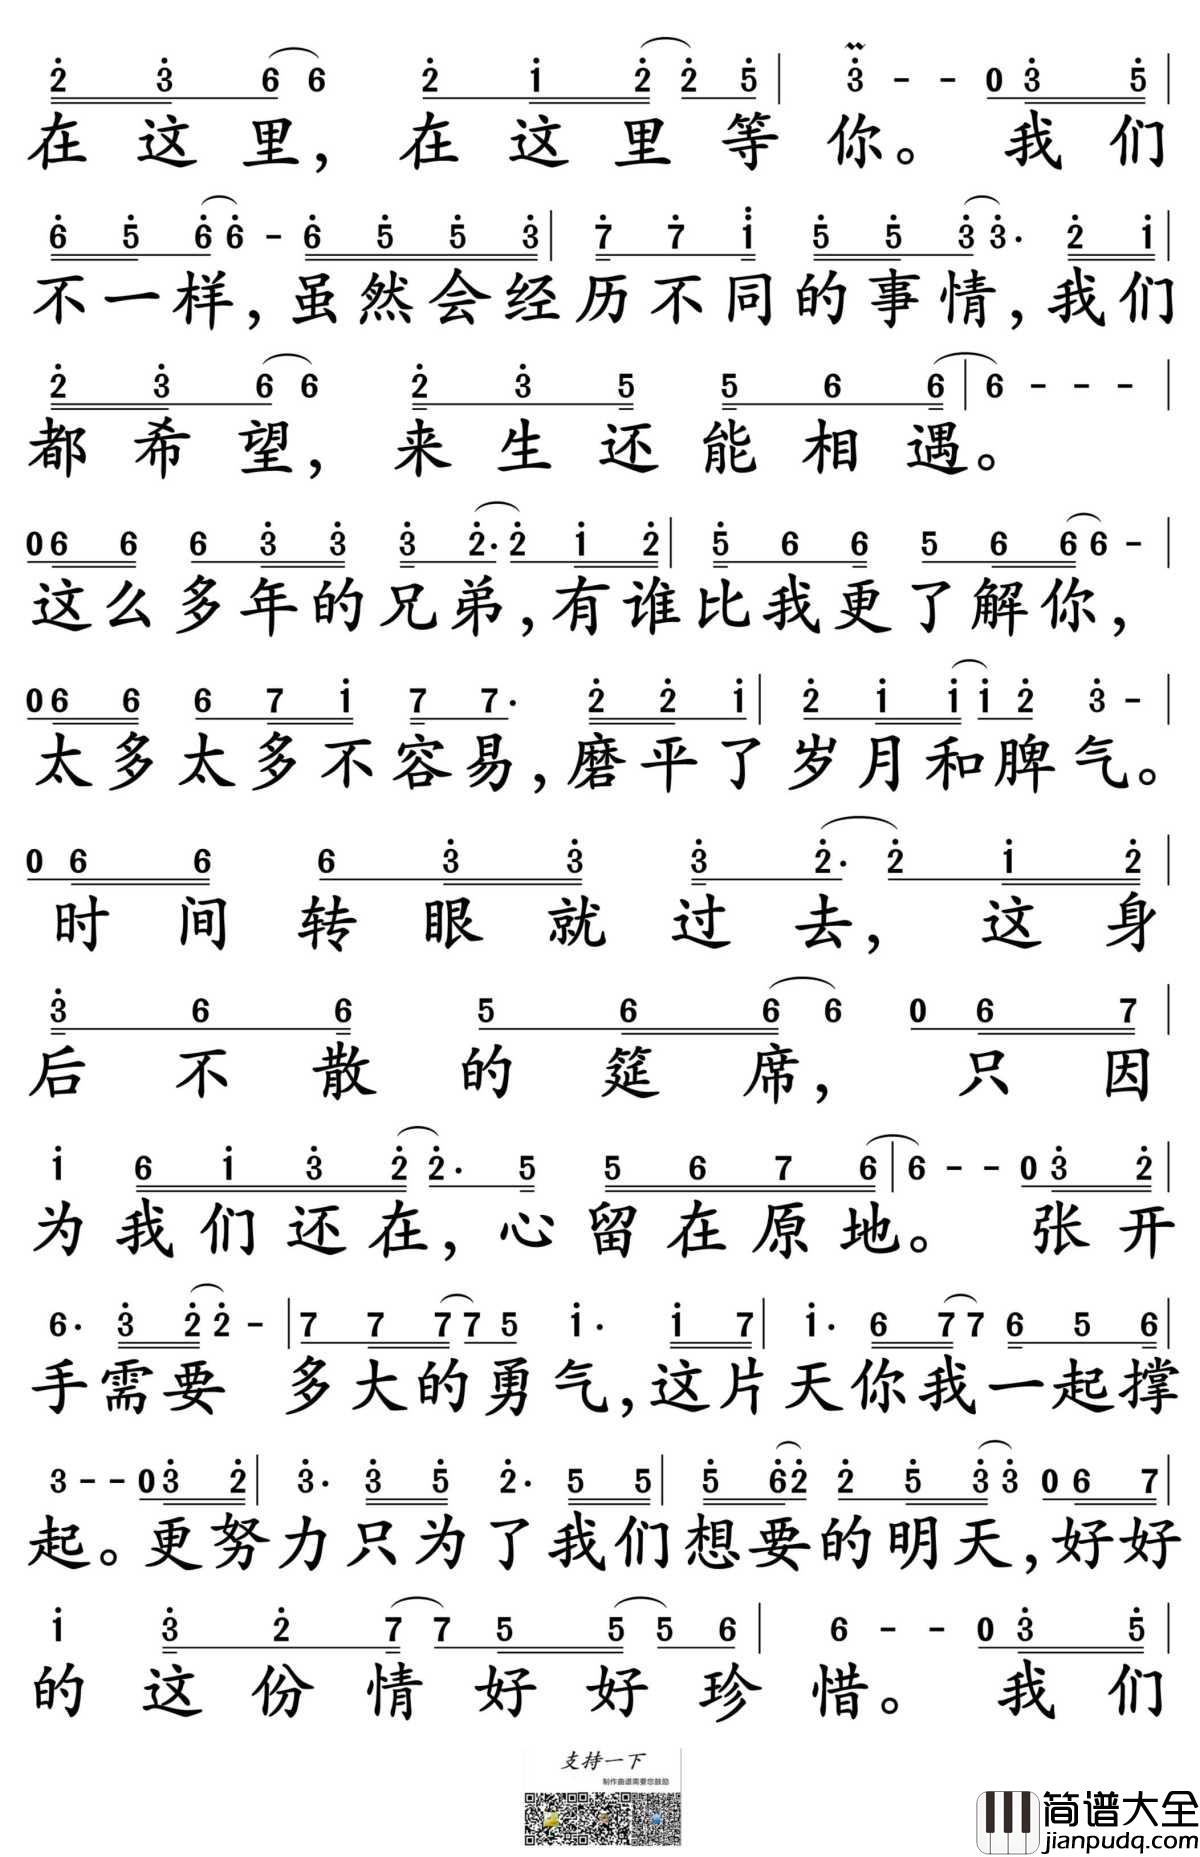 2 3 6 6 2 1 2 2 5 | 3 - - 0 3 5 |
在这里，在这里等你。我们
6 5 6 6 - 6 5 5 3 | 7 7 i 5 5 3 3. 2 1 |
不一样，虽然会经历不同的事情，我们
2 3 6 6 2 3 5 5 6 6 | 6 - - - |
都希望，来生还能相遇。
0 6 6 6 3 3 3 2. 2 1 2 | 5 6 6 5 6 6 6 - |
这么多年的兄弟，有谁比我更了解你，
0 6 6 6 7 1 7 7. 2 2 1 | 2 1 1 1 2 3 - |
太多太多不容易，磨平了岁月和脾气。
0 6 6 6 3 3 3 2. 2 1 2 |
时间转眼就过去，这身
3 6 6 5 6 6 6 0 6 7 |
后不散的筵席，只因
1 6 1 3 2 2. 5 5 6 7 6 | 6 - - 0 3 2 |
为我们还在，心留在原地。张开
6. 3 2 2 - | 7 7 7 7 5 1. 1 7 | 1. 6 7 7 6 5 6 |
手需要多大的勇气，这片天你我一起撑
3 - - 0 3 2 | 3. 3 5 2. 5 5 | 5 6 2 2 5 3 3 0 6 7 |
起。更努力只为了我们想要的明天，好好
1 3 2 7 7 5 5 5 6 | 6 - - 0 3 5 |
的这份情好好珍惜。我们
支持一下
制作曲谱需要您鼓励
简谱大全
jianpudq.com